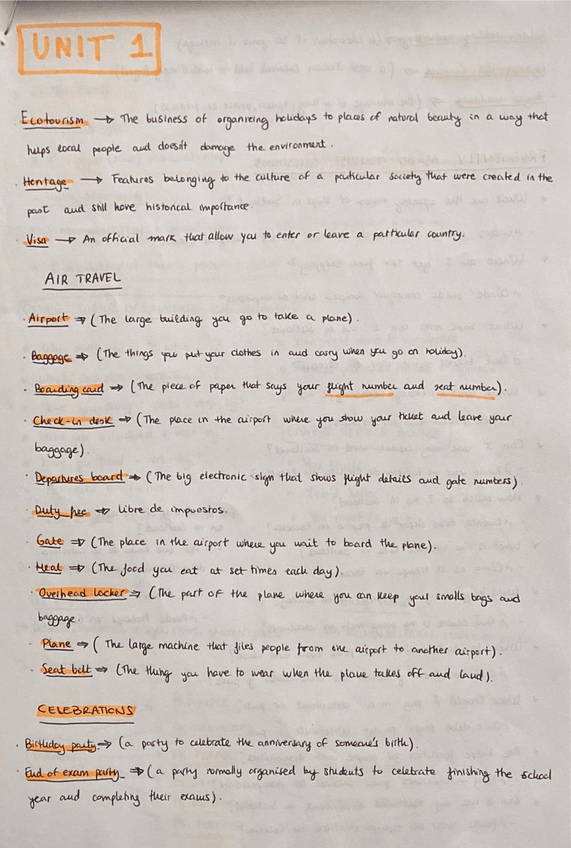 UNIT 1
Ecotourism → The business of organizing holidays to places of natural beauty in a way that
helps local people and doesn't damage the environment.
· Heritage → Features belonging to the culture of a particular society that were created in the
past and still have historical importance.
· Visa → An official mark that allow you to enter or leave a particular country.
AIR TRAVEL
· Airport ⇒ (The large building you go to take a plane).
· Baggage ⇒ (The things you put your clothes in and carry when you go on holiday).
· Boarding card ⇒ (The piece of paper that says your flight number and seat number).
· Check-in desk ⇒ (The place in the airport where you show your ticket and leave your
baggage).
· Departures board ⇒ (The big electronic sign that shows flight details and gate numbers).
· Duty free ⇒ Libre de impuestos.
· Gate ⇒ (The place in the airport where you wait to board the plane).
· Meal ⇒ (The food you eat at set times each day).
· Overhead locker ⇒ (The part of the plane where you can keep your smalls bags and
baggage.
· Plane ⇒ (The large machine that flies people from one airport to another airport).
· Seat belt ⇒ (The thing you have to wear when the plane takes off and land).
CELEBRATIONS
· Birthday party ⇒ (a party to celebrate the anniversary of someone's birth).
· End of exam party ⇒ (a party normally organised by students to celebrate finishing the school
year and completing their exams).